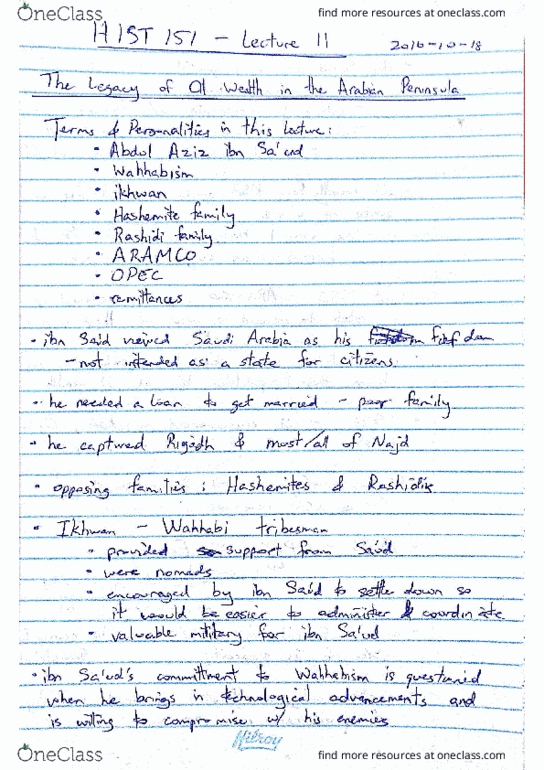 OneClass
find more resources at oneclass.com
HIST 151 - Lecture 11
2016-10-18
The Legacy of Oil Wealth in the Arabian Peninsula
Terms & Personalities in this lecture:
• Abdul Aziz ibn Sa'ud
• Wahhabism
• ikhwan
• Hashemite family
• Rashidi family
• ARAMCO
• OPEC
• remittances
• ibn Said viewed Saudi Arabia as his fiefdom
- not intended as a state for citizens.
• he needed a loan to get married - poor family
• he captured Riyadh & most/all of Najd
• opposing families: Hashemites & Rashidis
• Ikhwan - Wahhabi tribesman
• provided support from Saud
• were nomads
• encouraged by ibn Sa'd to settle down so
it would be easier to administer & coordinate
• valuable military for ibn Sa'ud
• ibn Sa'ud's committment to Wahhabism is questioned
when he brings in technological advancements and
is willing to compromise w/ his enemies
Hilroy
OneClass
find more resources at oneclass.com